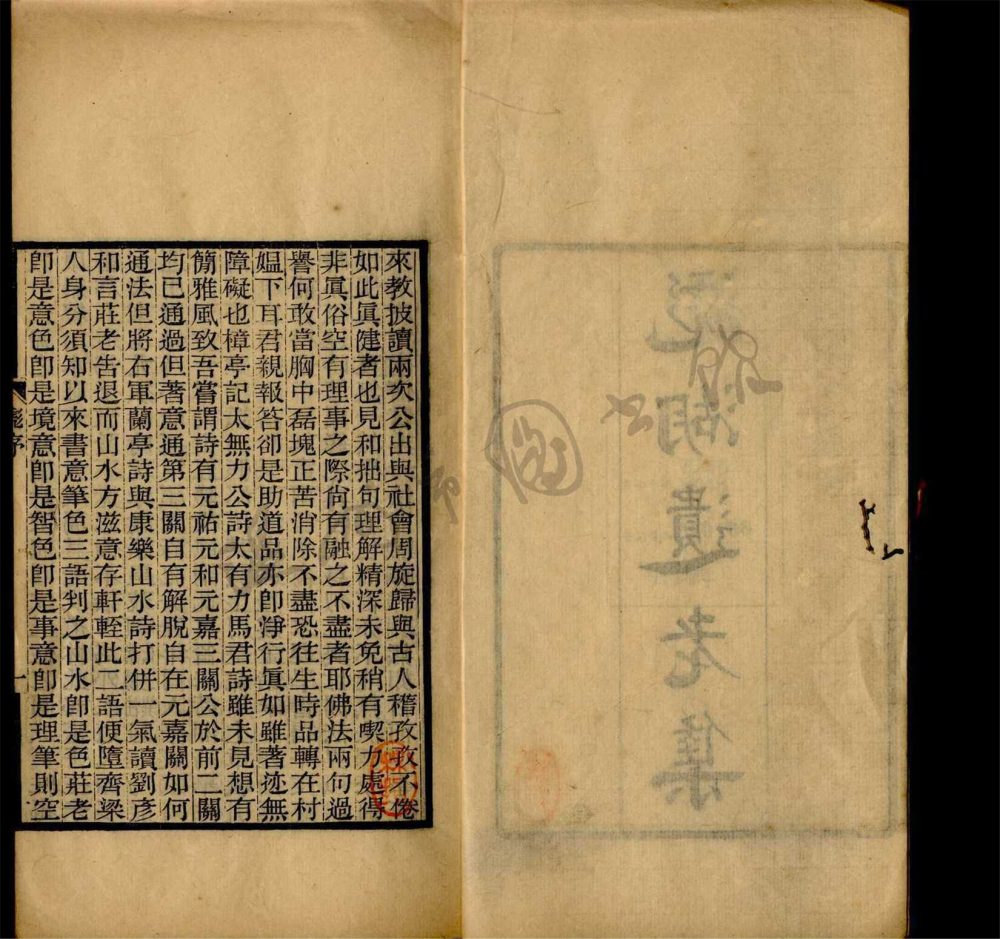 來教披讀兩次公出與社會周旋歸與古人稽孜孜不倦
如此眞健者也見和拙句理解精深未免稍有喫力處得
非眞俗空有理事之際尙有融之不盡者耶佛法兩句過
譽何敢當胸中磊塊正苦消除不盡恐往生時品轉在村
媼下耳君親報答卻是助道品亦卽淨行眞如雖著迹無
障礙也樟亭記太無力公詩太有力馬君詩雖未見想有
簡雅風致吾嘗謂詩有元祐元和元嘉三關公於前二關
均已通過但著意通第三關自有解脫自在元嘉關如何
通法但將右軍蘭亭詩與康樂山水詩打併一氣讀劉彥
和言莊老吿退而山水方滋意存軒輊此二語便墮齊梁
人身分須知以來書意筆色三語判之山水卽是色莊老
卽是意色卽是境意卽是智色卽是事意卽是理筆則空
序
一
湖遺老集